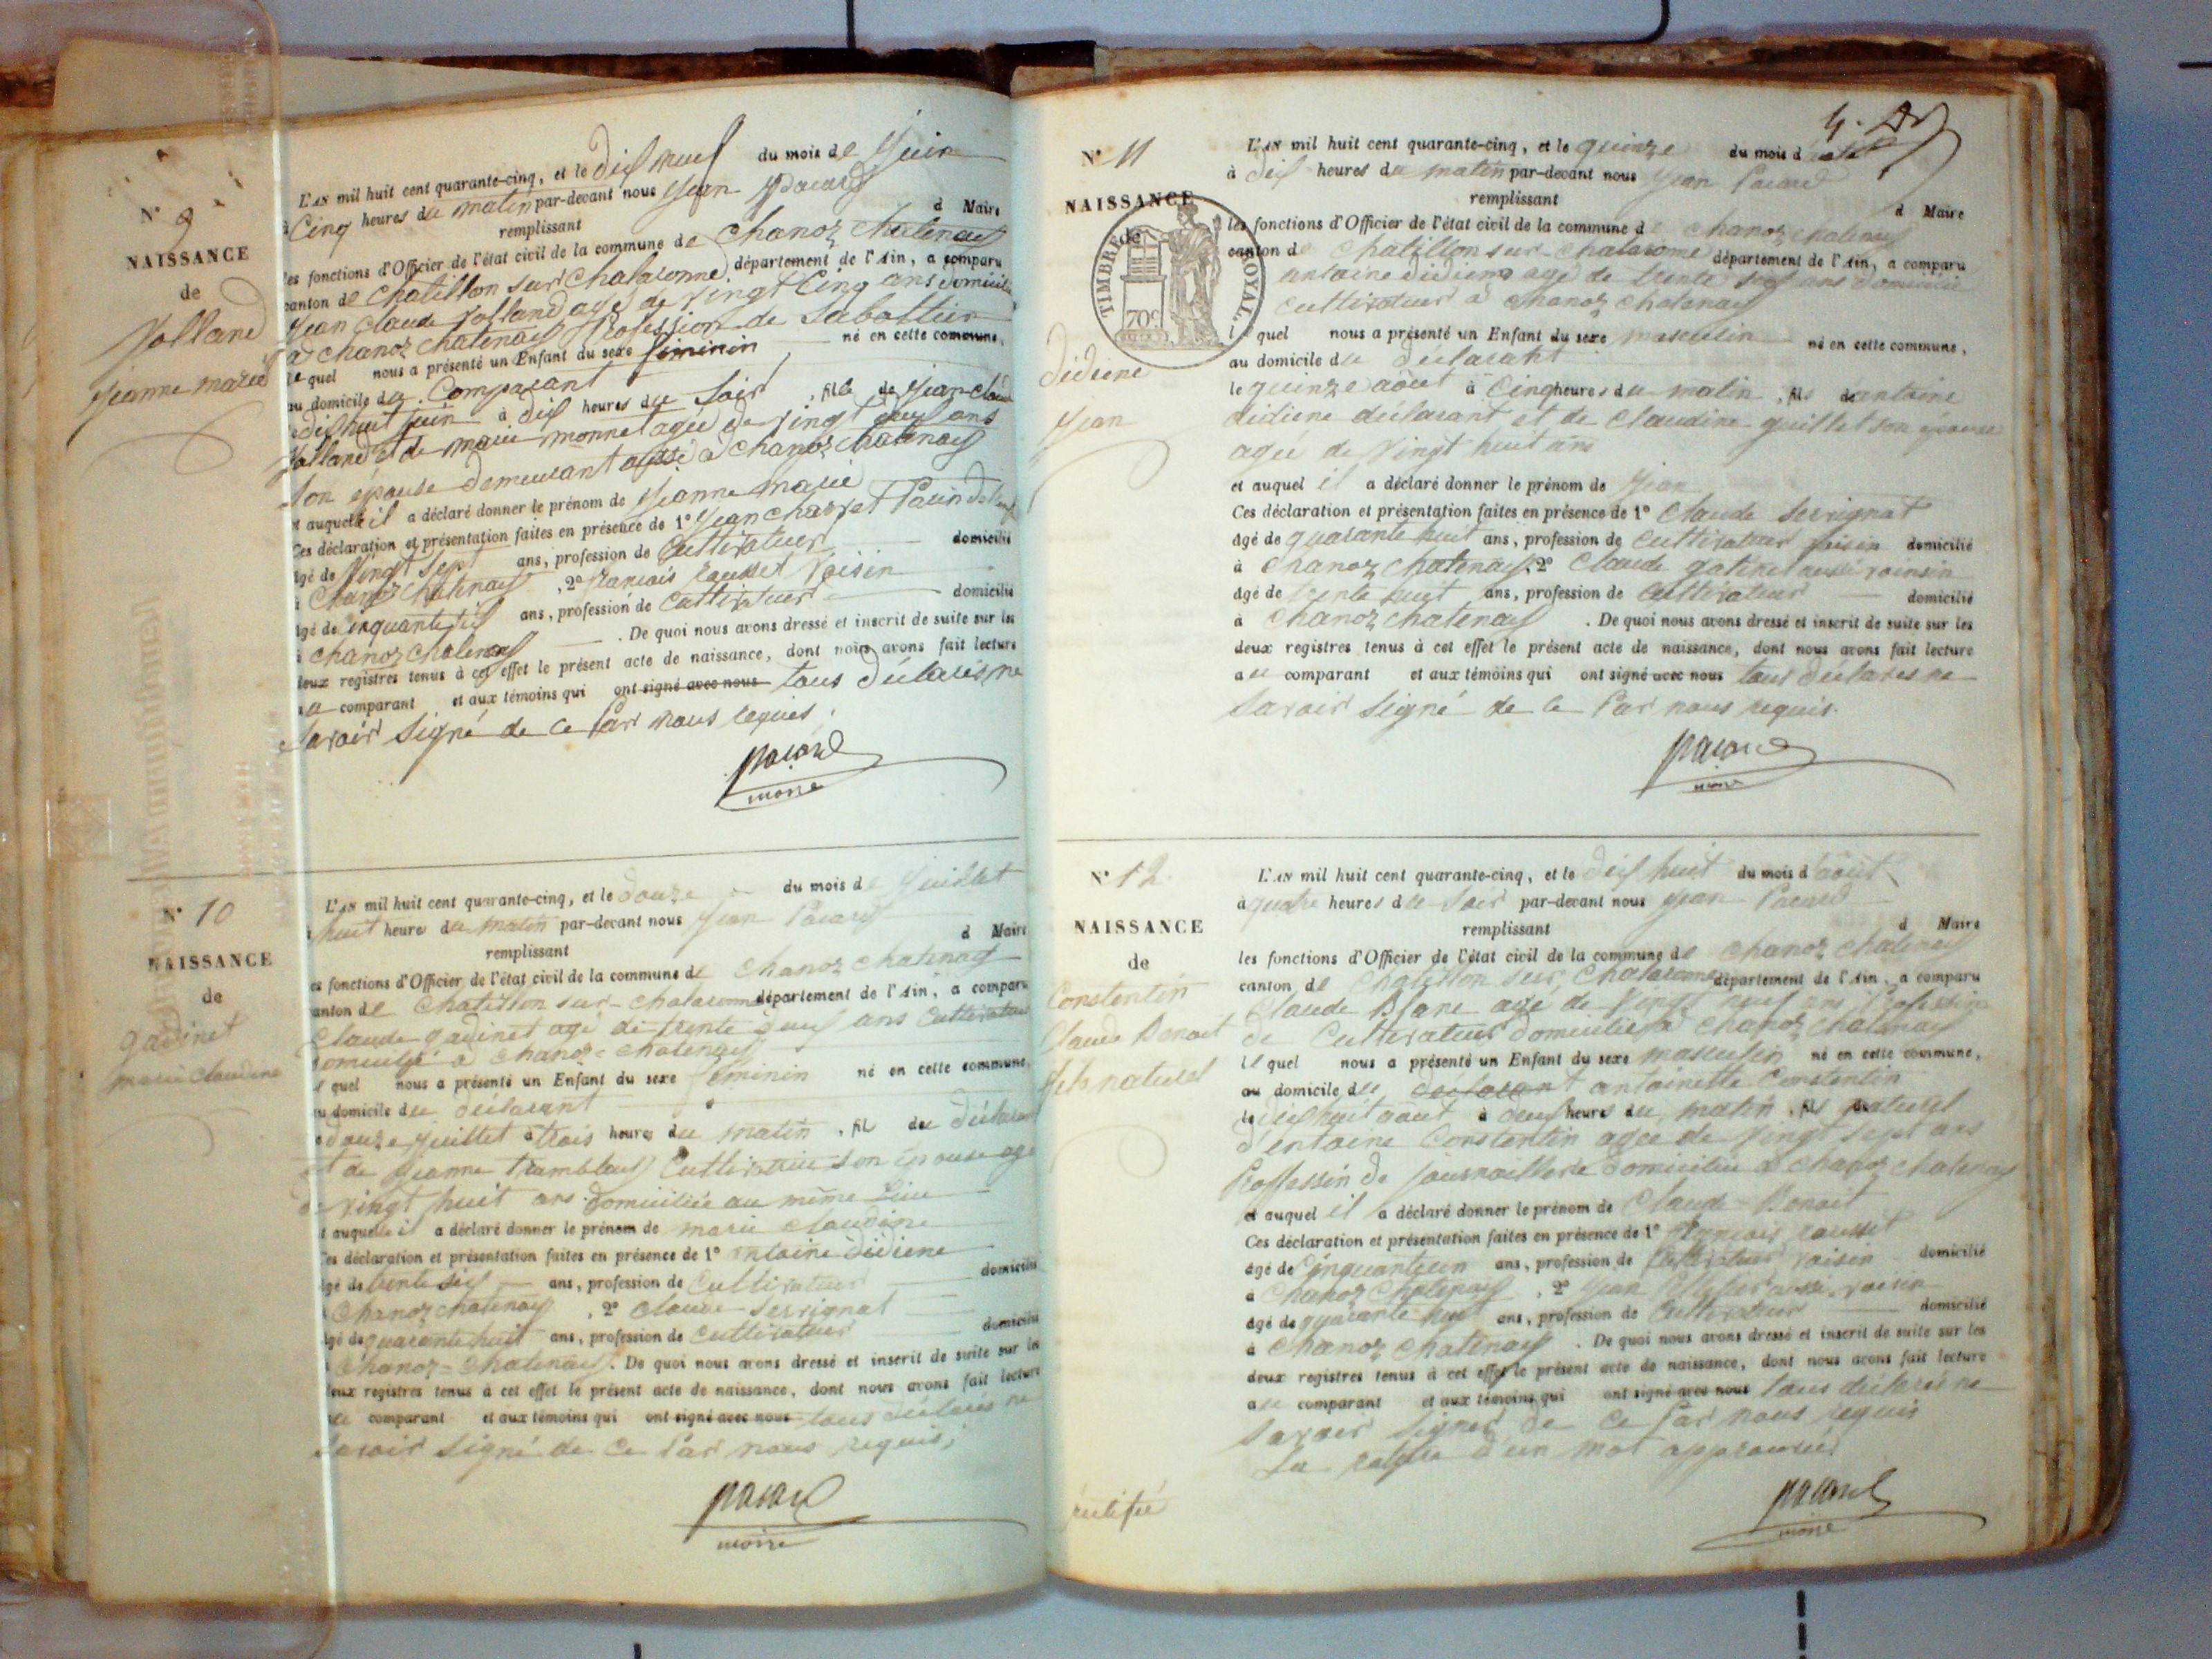 N° 9
NAISSANCE
de
Volland
Jeanne marie
L'AN mil huit cent quarante-cinq, et le dix neuf du mois de Juin
à Cinq heures du matin par-devant nous Jean Pacard
remplissant d Maire
les fonctions d'Officier de l'état civil de la commune de Chanoz Chatenay
canton de Chatillon sur Chalaronne département de l'Ain, a comparu
Jean Claude Volland agé de Vingt Cinq ans domicilié
à Chanoz Chatenay Profession de Sabottier
le quel nous a présenté un Enfant du sexe feminin né en cette commune,
au domicile du Comparant
le dix huit juin à dix heures du Soir , fille de Jean Claude
Volland et de marie monnet agée de Vingt deux ans
Son épouse demeurant aussi à Chanoz Chatenay
et auquelle il a déclaré donner le prénom de Jeanne marie
Ces déclaration et présentation faites en présence de 1° Jean Charvet
âgé de Vingt Sept ans, profession de Cultivateur domicilié
à Chanoz Chatenay , 2° francois rousset Voisin
âgé de Cinquante six ans, profession de Cultivateur domicilié
à Chanoz Chatenay . De quoi nous avons dressé et inscrit de suite sur les
deux registres tenus à cet effet le présent acte de naissance, dont nous avons fait lecture
au comparant et aux témoins qui ont signé avec nous tous déclarés ne
Savoir Signé de ce Par nous requis.
pacard
maire
N° 10
NAISSANCE
de
gadinet
marie Claudine
L'AN mil huit cent quarante-cinq, et le douze du mois de Juillet
à huit heure du matin par-devant nous Jean Pacard
remplissant d Maire
les fonctions d'Officier de l'état civil de la commune de Chanoz Chatenay
canton de Chatillon sur-Chalaronne département de l'Ain, a comparu
Claude gadinet agé de trente deux ans Cultivateur
domicilié à Chanoz-Chatenay
le quel nous a présenté un Enfant du sexe féminin né en cette commune,
au domicile du déclarant
le douze Juillet à trois heures du matin , fil du déclarant
et de Jeanne Cultivatrice son épouse agé
de vingt huit ans domiciliée au même Lieu
et auquelle il a déclaré donner le prénom de marie claudine
Ces déclaration et présentation faites en présence de 1° antoine didiene
âgé de trente six ans, profession de Cultivateur domicilié
à Chanoz Chatenay , 2° Claude Serrignat
âgé de quarante huit ans, profession de Cultivateur domicilié
à Chanoz-Chatenay. De quoi nous avons dressé et inscrit de suite sur les
deux registres tenus à cet effet le présent acte de naissance, dont nous avons fait lecture
au comparant et aux témoins qui ont signé avec nous tous déclarés ne
savoir Signé de ce Par nous requis,
pacard
maire
N° 11
NAISSANCE
de
TIMBRE ROYAL
70c
didiene
Jean
L'AN mil huit cent quarante-cinq, et le quinze du mois d'août
à dix heures du matin par-devant nous Jean Pacard
remplissant d Maire
les fonctions d'Officier de l'état civil de la commune de Chanoz Chatenay
canton de Chatillon sur-Chalaronne département de l'Ain, a comparu
antoine didiene agé de trente six ans domicilié
cultivateur à Chanoz Chatenay
le quel nous a présenté un Enfant du sexe masculin né en cette commune,
au domicile du declarant
le quinze août à Cinq heures du matin , fils de antoine
didiene déclarant et de Claudine guillet son épouse
agée de Vingt huit ans
et auquel il a déclaré donner le prénom de Jean
Ces déclaration et présentation faites en présence de 1° Claude Serrignat
âgé de quarante huit ans, profession de Cultivateur voisin domicilié
à Chanoz Chatenay, 2° Claude gatinet aussi voinsin
âgé de trente huit ans, profession de Cultivateur domicilié
à Chanoz Chatenay . De quoi nous avons dressé et inscrit de suite sur les
deux registres tenus à cet effet le présent acte de naissance, dont nous avons fait lecture
au comparant et aux témoins qui ont signé avec nous tous déclares ne
Savoir Signé de ce Par nous requis.
pacard
maire
N° 12
NAISSANCE
de
Constentin
Claude Benoit
fils naturel
L'AN mil huit cent quarante-cinq, et le dix huit du mois d'août
à quatre heures du Soir par-devant nous Jean Pacard
remplissant d Maire
les fonctions d'Officier de l'état civil de la commune de Chanoz Chatenay
canton de Chatillon sur Chalaronne département de l'Ain, a comparu
Claude Blanc agé de Vingt neuf ans Profession
de Cultivateur domicilié à Chanoz Chatenay
le quel nous a présenté un Enfant du sexe masculin né en cette commune,
au domicile de declarant antoinette Constentin
le dix huit aout à deux heures du matin , fils naturel
d'entoine Constentin agée de Vingt Sept ans
Proffessin de journaillere domiciliée à Chanoz Chatenay
et auquel il a déclaré donner le prénom de Claude Benoit
Ces déclaration et présentation faites en présence de 1° françois rousset
âgé de Cinquante un ans, profession de Cultivateur voisin domicilié
à Chanoz Chatenay , 2° Jean aussi voisin
âgé de quarante huit ans, profession de Cultivateur domicilié
à Chanoz Chatenay . De quoi nous avons dressé et inscrit de suite sur les
deux registres tenus à cet effet le présent acte de naissance, dont nous avons fait lecture
au comparant et aux témoins qui ont signé avec nous tous déclarés ne
Savoir Signer de ce Par nous requis
La rature d'un mot approuvée
pacard
maire